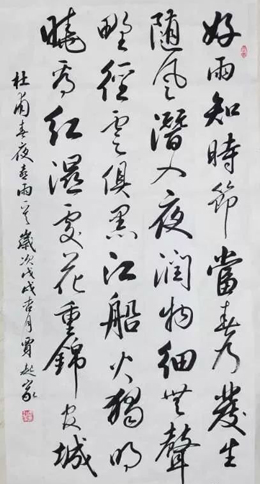 好雨知時節當春乃發生
随風潛入夜潤物細無聲
野徑雲俱黑江船火獨明
曉看紅濕處花重錦官城
杜甫春夜喜雨 歲次戊戌吉月